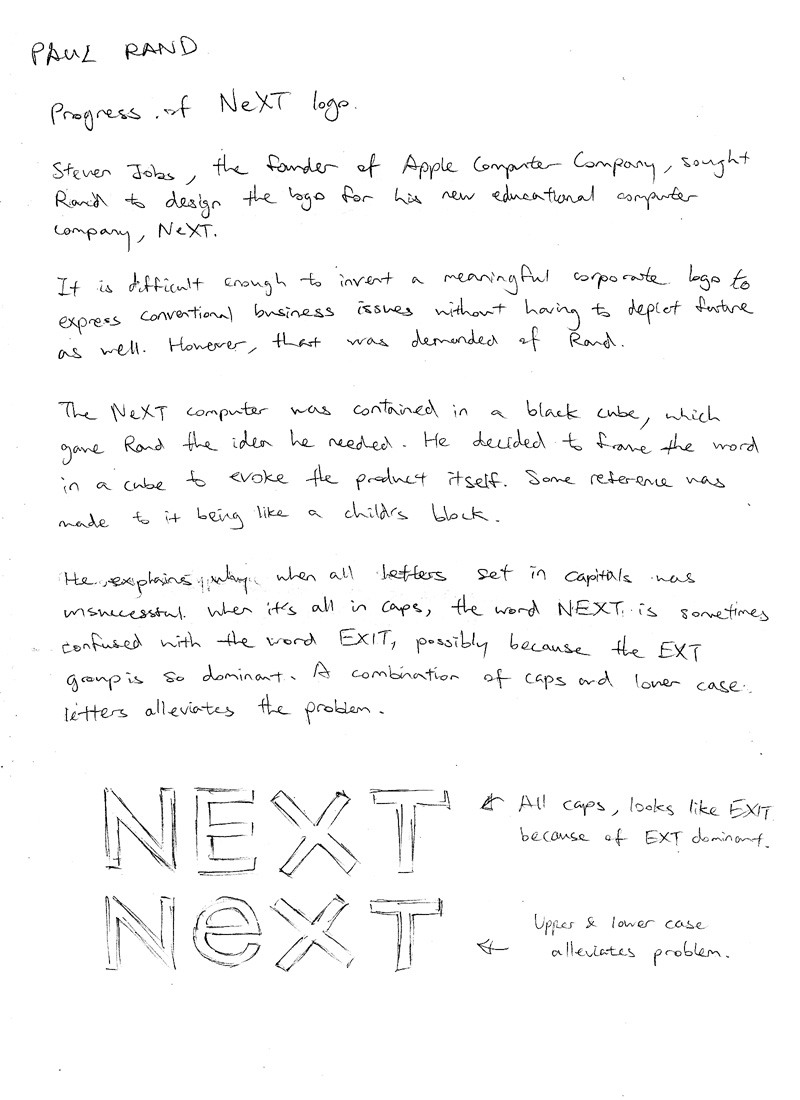 PAUL RAND
Progress of NeXT logo.
Steven Jobs, the founder of Apple Computer Company, sought
Rand to design the logo for his new educational computer
company, NeXT.
It is difficult enough to invent a meaningful corporate logo to
express conventional business issues without having to depict future
as well. However, that was demanded of Rand.
The NeXT computer was contained in a black cube, which
gave Rand the idea he needed. He decided to frame the word
in a cube to evoke the product itself. Some reference was
made to it being like a child's block.
He explains why when all letters set in capitals was
unsuccessful. When it's all in caps, the word NEXT is sometimes
confused with the word EXIT, possibly because the EXT
group is so dominant. A combination of caps and lower case
letters alleviates the problem.
NEXT
All caps, looks like EXIT
because of EXT dominant.
NeXT
Upper & lower case
alleviates problem.